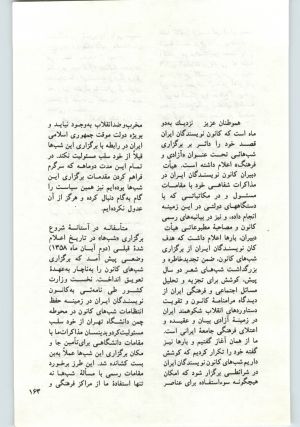 هموطنان عزیز نزدیك به دو
ماه است که کانون نویسندگان ایران
قصد خود را دائر بر برگزاری
شب‌هائی تحت عنوان «آزادی و
فرهنگ» اعلام داشته است. هیأت
دبیران کانون نویسندگان ایران در
مذاکرات شفاهی خود با مقامات
مسئول و در مکاتباتی که با
دستگاههای دولتی در این زمینه
انجام داده، و نیز در بیانیه‌های رسمی
کانون و مصاحبهٔ مطبوعاتی هیأت
دبیران، بارها اعلام داشته که هدف
کانون نویسندگان ایران از برگزاری
شب‌های کانون، ضمن تجدیدخاطره و
بزرگداشت شب‌های شعر دو سال
پیش، کوشش برای تجزیه و تحلیل
مسائل اجتماعی و فرهنگی ایران از
دیدگاه مرامنامهٔ کانون و تقویت
دستاوردهای انقلاب شکوهمند ایران
در زمینهٔ آزادی بیان و عقیده و
اعتلای فرهنگی جامعهٔ ایرانی است.
ما از همان آغاز گفتیم و بارها نیز
گفته خود را تکرار کردیم که کوشش
داریم شب‌های کانون نویسندگان ایران
در شرائطی برگزار شود که امکان
هیچگونه سوءاستفاده برای عناصر
مخرب و ضدانقلاب به‌وجود نیاید و
بویژه دولت موقت جمهوری اسلامی
ایران در رابطه با برگزاری این شب‌ها
قبلاً از خود سلب مسئولیت نکند. در
تمام این مدت دوماهه که سرگرم
فراهم کردن مقدمات برگزاری این
شب‌ها بوده‌ایم نیز همین سیاست را
گام به‌گام دنبال کرده و هرگز از آن
عدول نکرده‌ایم.
متأسفانه در آستانهٔ شروع
برگزاری «شب‌ها» در تاریخ اعلام
شدهٔ قبلی (دوم آبان ماه ۱۳۵۸)
وضعی پیش آمد که برگزاری
شب‌های کانون را به‌ناچار به‌عهدهٔ
تعویق انداخت. نخست وزارت
کشور طی نامه‌ئی به‌کانون
نویسندگان ایران در زمینه حفظ
انتظامات شب‌های کانون در محوطه
چمن دانشگاه تهران از خود سلب
مسئولیت کرد و بدینسان مذاکرات ما با
مقامات دانشگاهی برای تأمین جا و
مکان برگزاری این شب‌ها عملاً به‌بن
بست کشانده شد. این طرز برخورد
مقامات رسمی با مسألهٔ شب‌ها نه
تنها استفادهٔ ما از مراکز فرهنگی و
۱۶۳